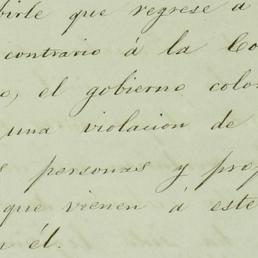 birle que regrese a
contrario á la Co
o, el gobierno colo
una violacion de
s personas y prop
que vienen á este
n él.